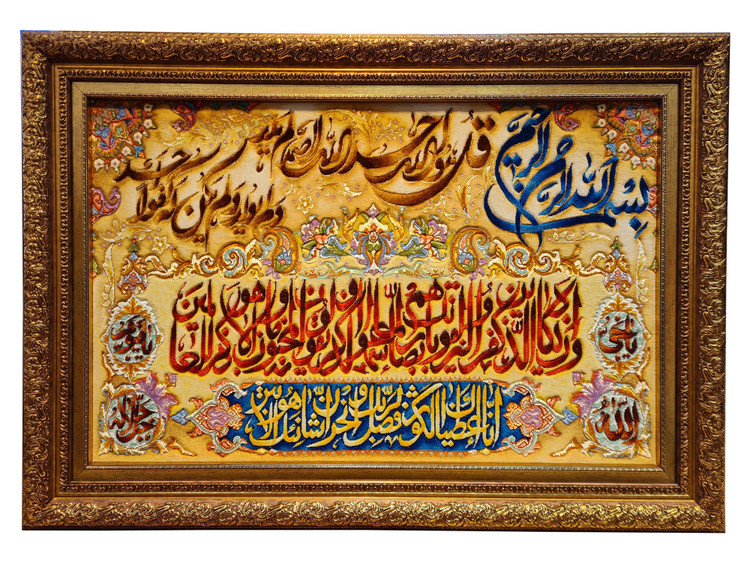 بسم الله الرحمن الرحیم
قل هو الله احد الله الصمد لم یلد
ولم یولد ولم یکن له کفوا احد
وان یکاد الذین کفروا لیزلقونک بابصارهم لما سمعوا الذکر ویقولون انه لمجنون وما هو الا ذکر للعالمین
انا اعطیناک الکوثر فصل لربک وانحر ان شانئک هو الابتر
یا حی
یا قیوم
الله
جل جلاله